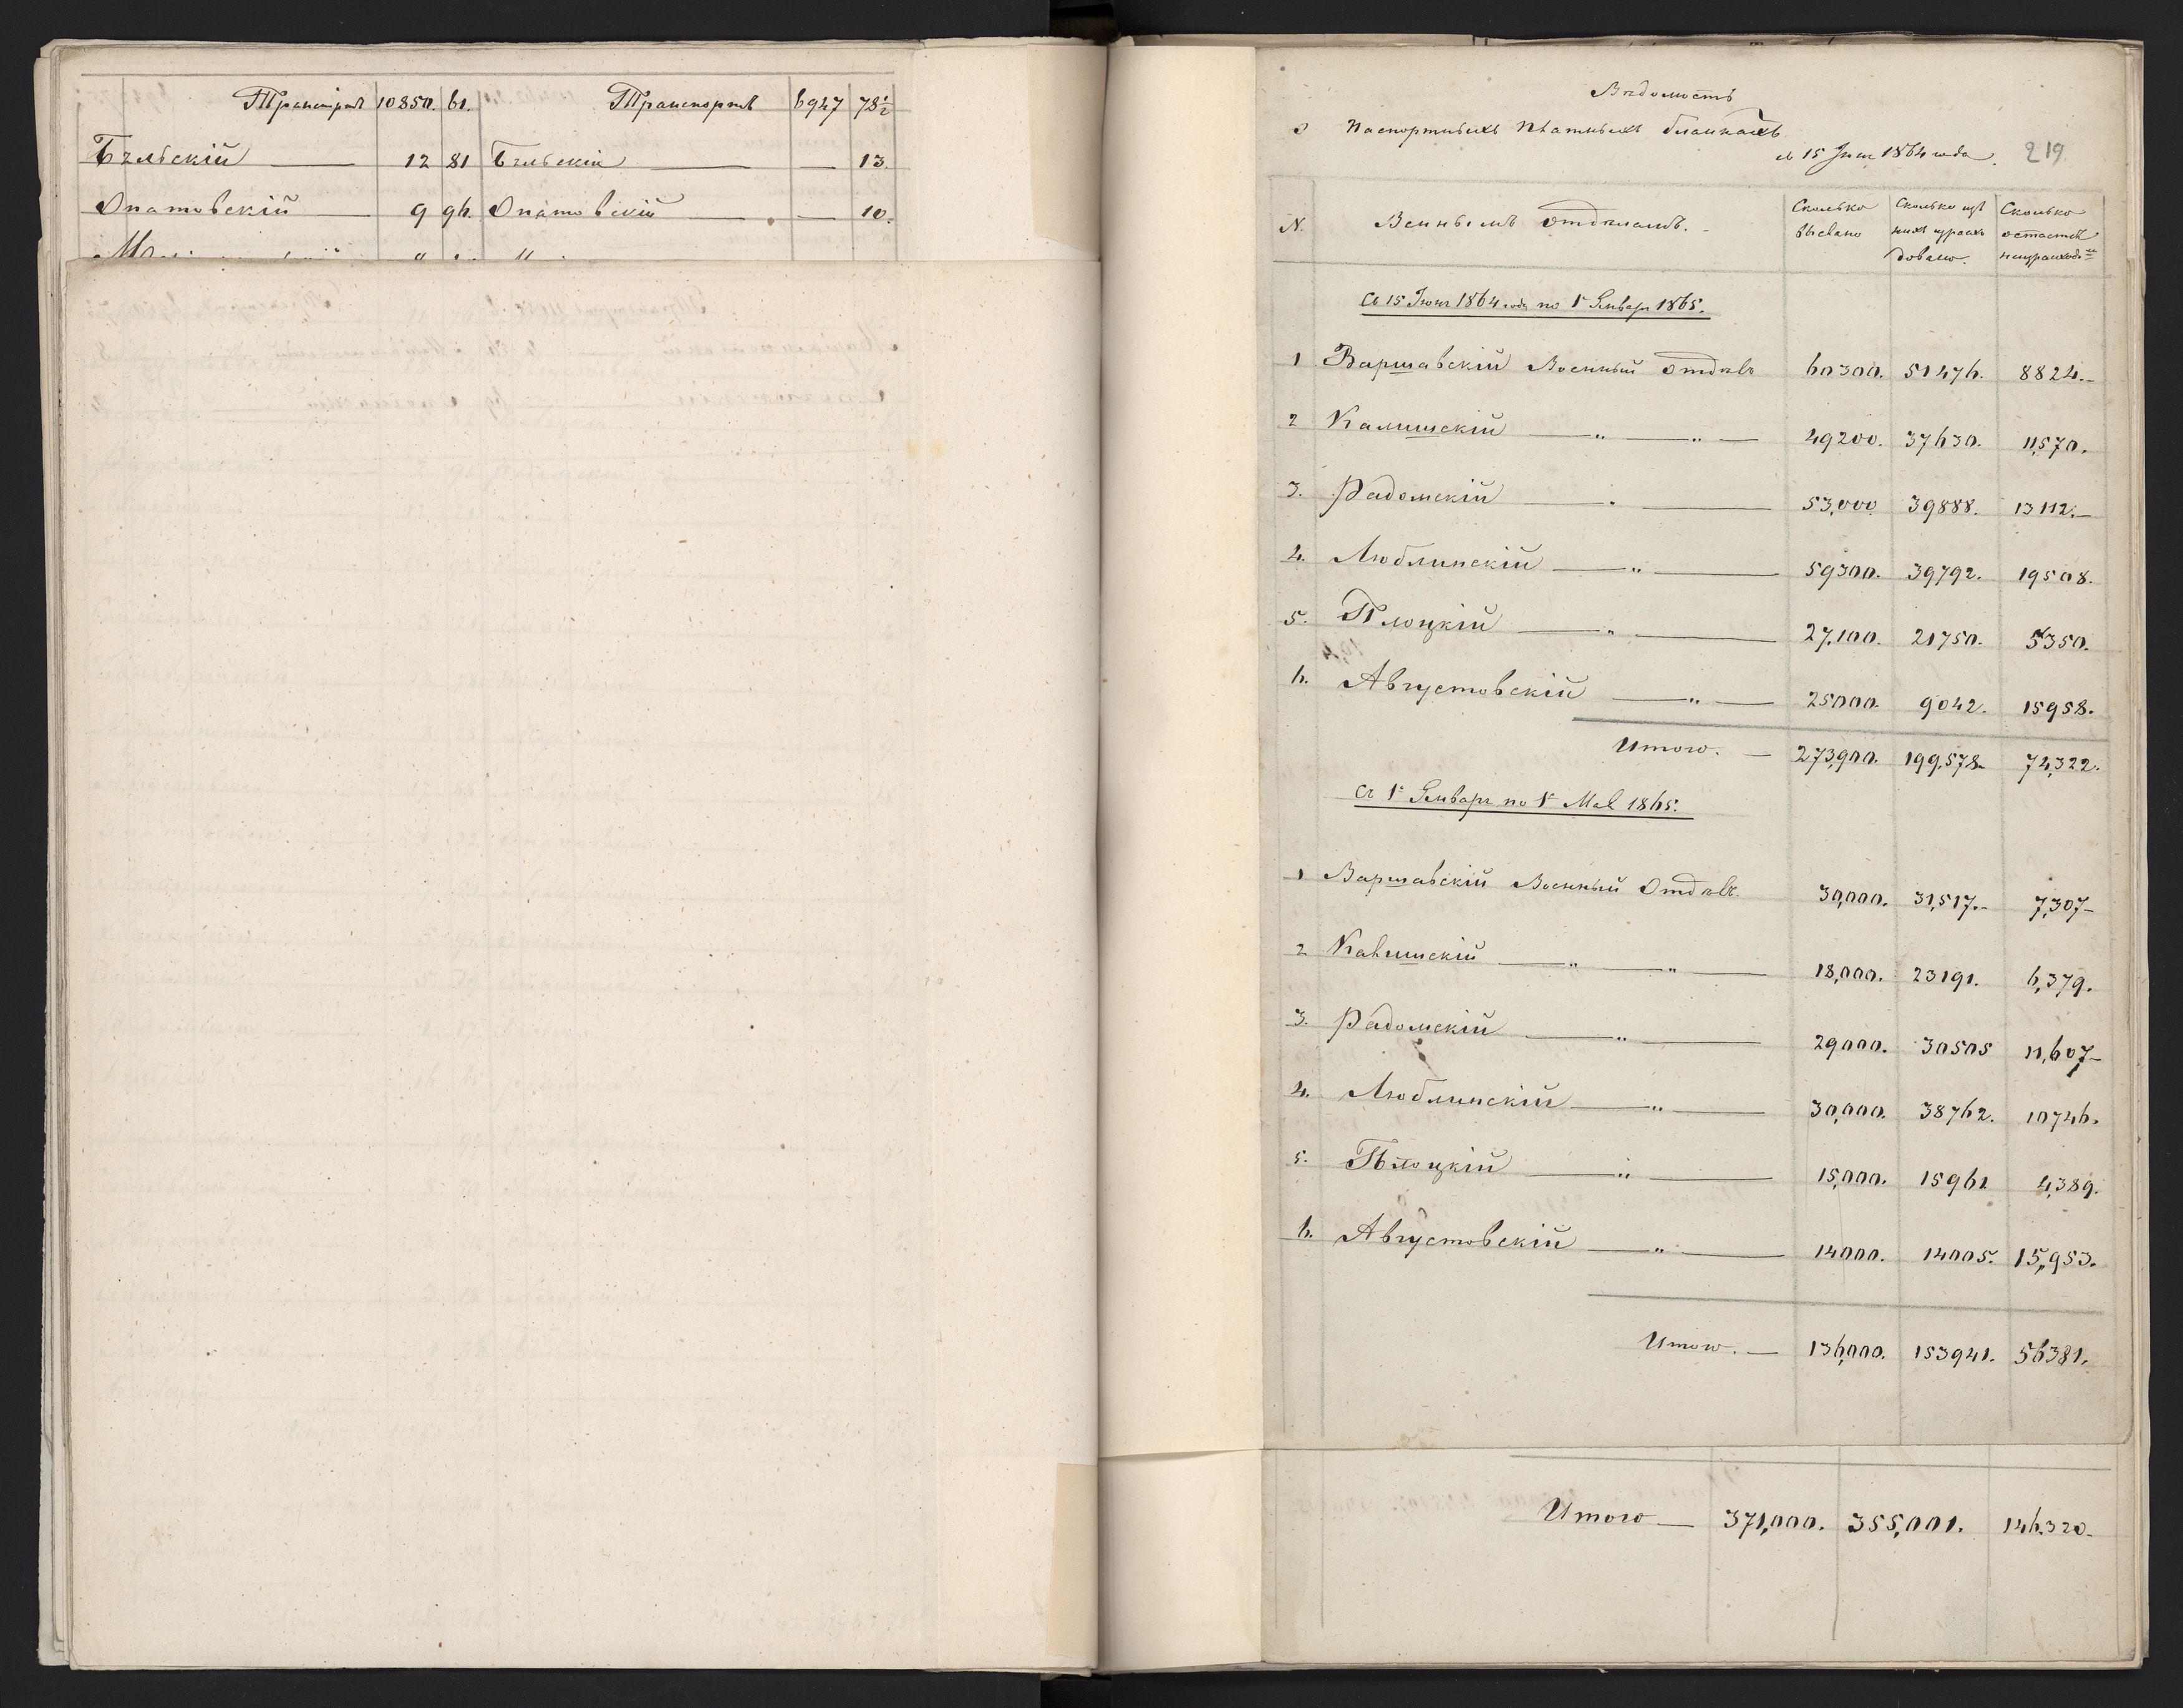 Транспортъ 10850. 61. Транспортъ 6947 78½
Бѣльскій — 12 81 Бѣльскій — — 13.
Опатовскій — 9 96. Опатовскій — — 10.
Вѣдомость
о паспортныхъ платныхъ бланкахъ
съ 15 Іюня 1864 года. 219
N. Военнымъ Отдѣламъ. Сколько выслано Сколько изъ нихъ израсходовано. Сколько остается неизрасход.
Съ 15 Іюня 1864 года по 1е Января 1865.
1 Варшавскій Военный Отдѣлъ 60300. 51476. 8824.—
2 Калишскій — „ — „ — 49200. 37630. 11,570.
3. Радомскій — „ — 53,000 39888. 13112.—
4. Люблинскій — „ — 59300. 39792. 19508.
5. Плоцкій — „ — 27,100. 21750. 5350.
6. Августовскій — „ — 25000. 9042. 15958.
Итого. — 273,900. 199,578. 74,322.
Съ 1е Января по 1е Мая 1865.
1 Варшавскій Военный Отдѣлъ. 30,000. 31,517.— 7,307—
2 Калишскій — „ — „ — 18,000. 23191. 6,379.
3. Радомскій — „ — 29000. 30505 11,607—
4. Люблинскій — „ — 30,000. 38762. 10746.
5. Плоцкій — „ — 15,000. 15961 4,389.
6. Августовскій — „ — 14000. 14005. 15,953.
Итого. — 136,000. 153941. 56381.
Итого — 371,000. 355,001. 146,320.